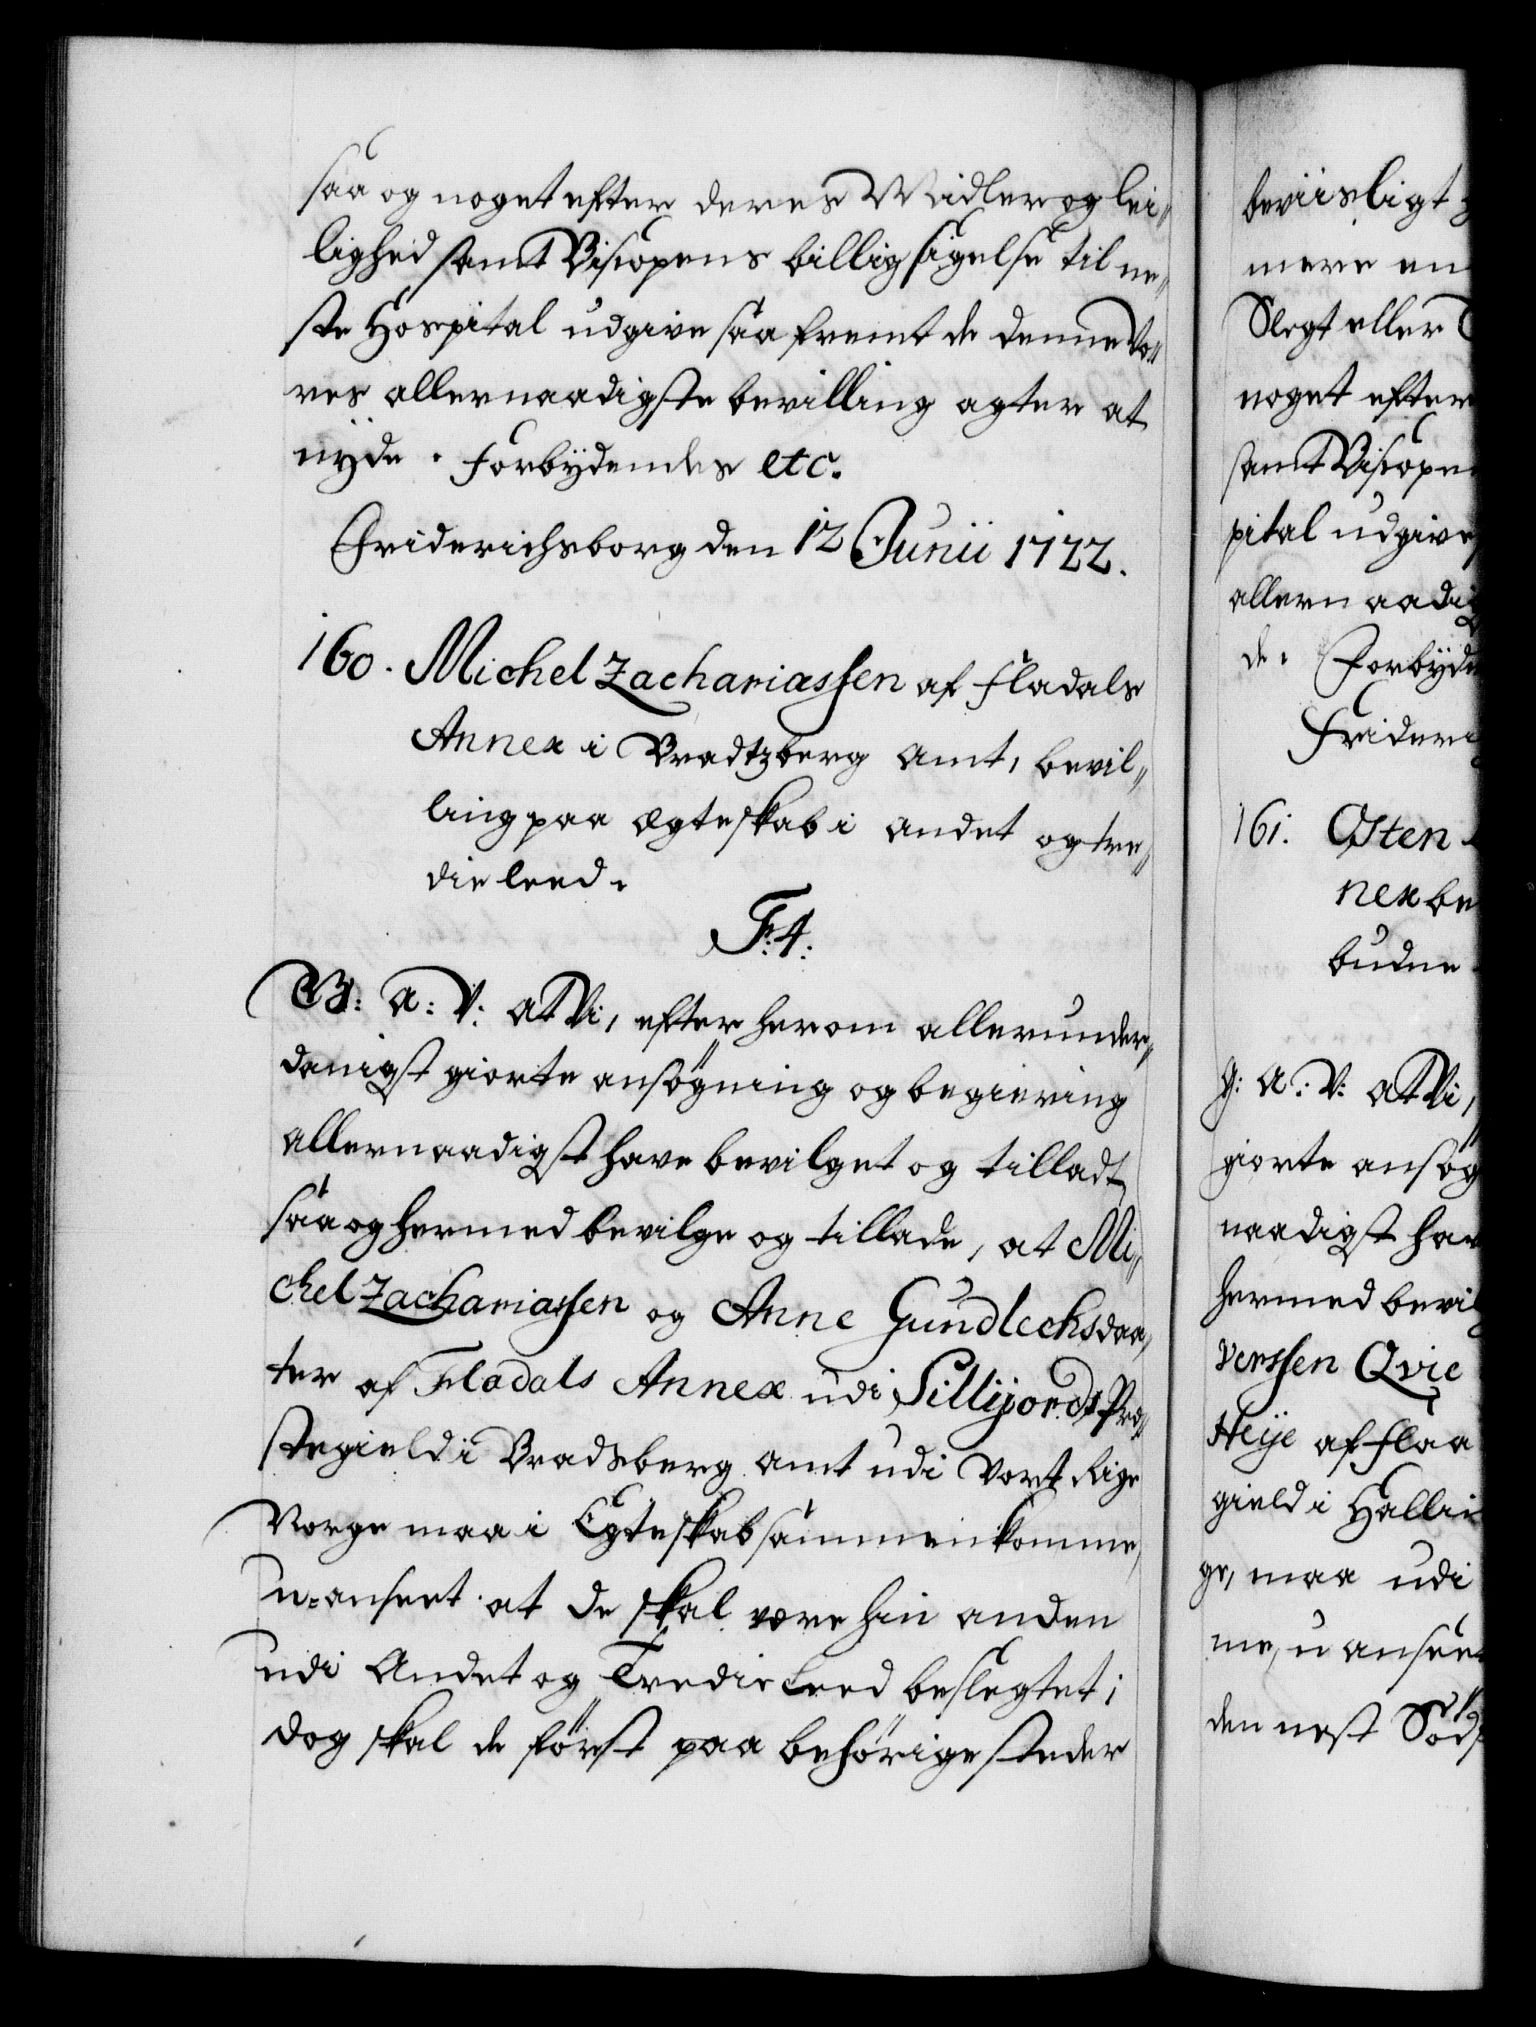 saa og noget efter deres Midler og lei„
lighed samt Biscopens billig sigelse til ne„
ste Hospital udgive saa fremt de denne Vo„
res allernaadigste bevilling agter at
nyde. Forbydendes etc.
Friderichsborg den 12 Junii 1722.
160. Michel Zachariassen af Fladals
Annex i Bradtzberg Amt, bevil„
ling paa Ægteskab i andet og tre„
die leed.
F: 4:
G: A: V: At Vi, efter herom allerunder„
danigst giorte ansøgning og begiering
allernaadigst have bevilget og tilladt
saa og hermed bevilge og tillade, at Mi„
chel Zachariassen og Anne Gundlechsdaa„
ter af Fladals Annex udi Sillijords Præ„
stegield i Bradsberg amt udi Vort Rige
Norge maa i Egteskab sammenkomme,
u-anseet at de skal være hin anden
udi Andet og Tredie Leed beslegtet;
dog skal de først paa behørige steder
beviisligt
mere en
Slegt eller
noget efter
samt Biscopen
pital udgive
allernaadig
de. Forbyde
Frideri
161. Osten
nex be
budne
G: A: V: At Vi,
giorte ansøg
naadigst hav
hermed bevil
verssen Qvie
Heije af Flaa
gield i Hallin
ge, maa udi
me, u anseet
den nest Sød